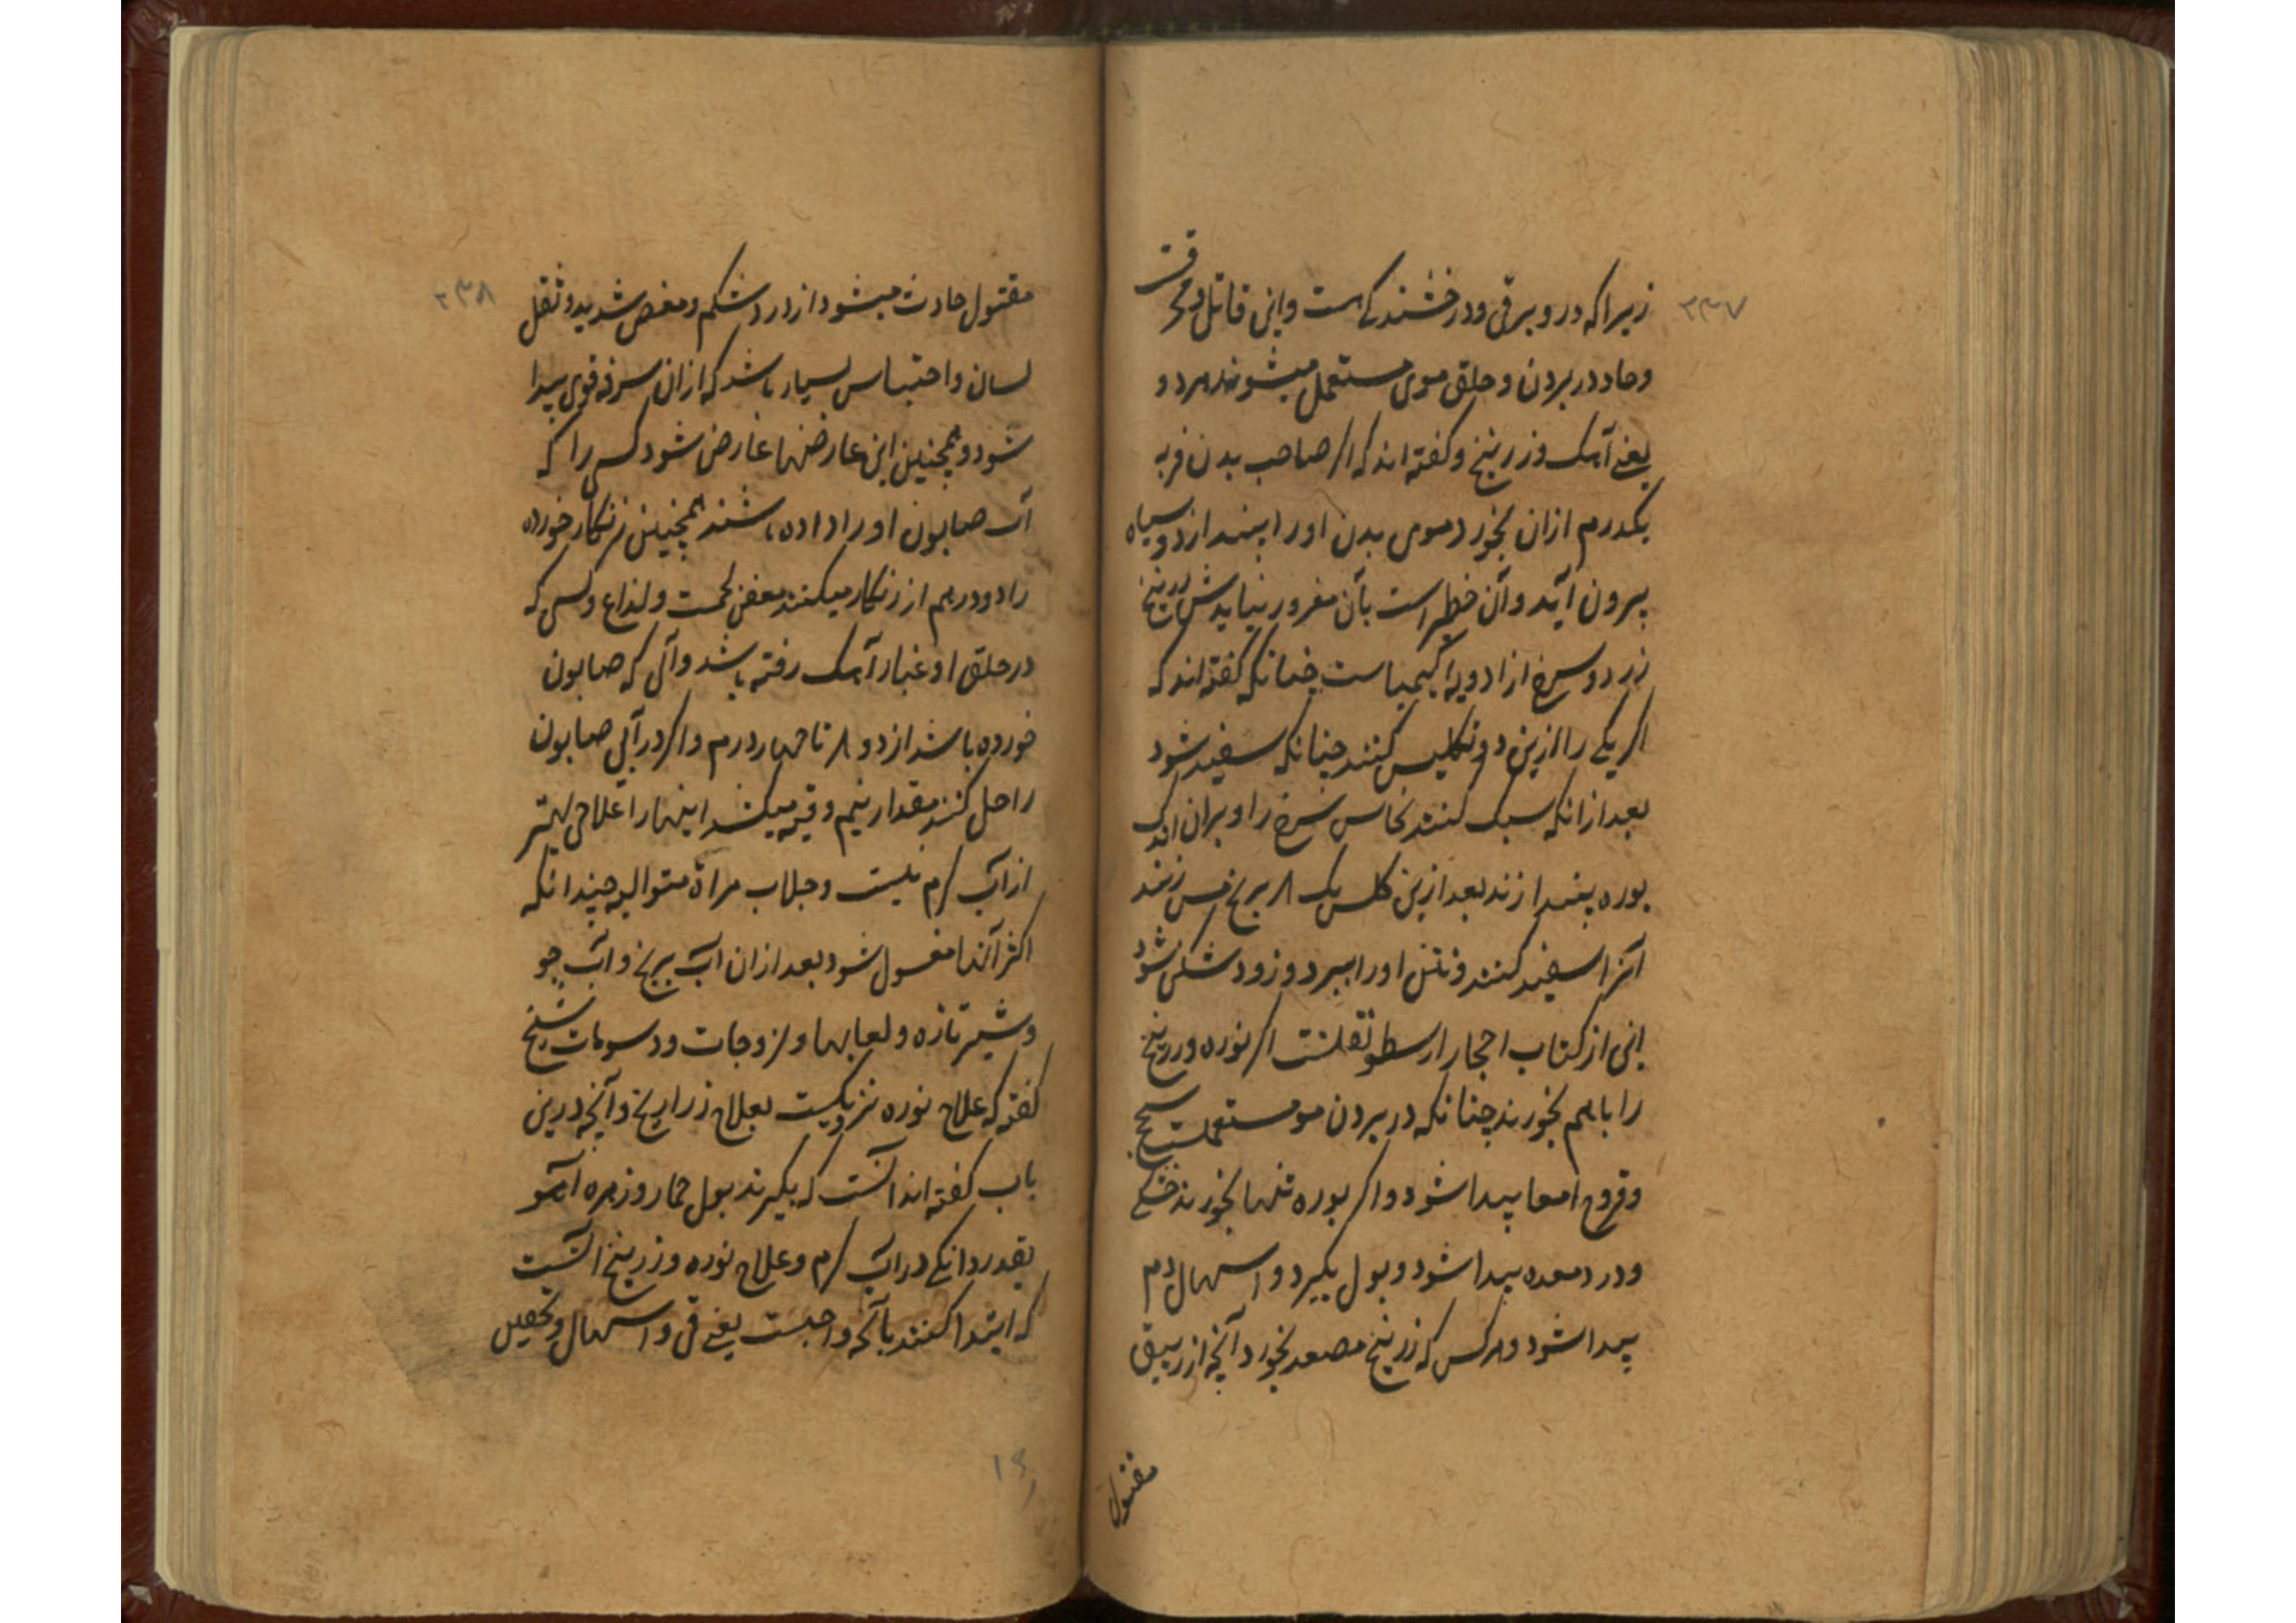 ۲۳۷
زیراکه درو برقی و درخشندکی است و این قاتل و محرقست
وحاد در بردن و حلق موی مستعمل میشوند هر دو
یعنے آهک و زرنیخ و کفته اند که اکر صاحب بدن فربه
یکدرم ازان بخورد موی بدن او را بیندازد و سیاه
بیرون آید و آن خطر است بآن مغرور نباید شد زرنیخ
زرد و سرخ از ادویه کیمیاست چنانکه کفته اند که
اکر یکے را ازین دو تکلیس کنند چنانکه سفید شود
بعد ازانکه سبک کنند نحاس سرخ را و بران اندک
بوره بیندازند بعد ازین کلس یک بر مس زنند
آنرا سفید کنند و نتن او را ببرد و زود شکن شود
این از کتاب احجار ارسطو نقلست اکر نوره و زرنیخ
را باهم بخورند چنانکه در بردن مو مستعملست سحج
و قروح امعا پیدا شود و اکر بوره تنها بخورند خشکے
و درد معده پیدا شود و بول بکیرد و اسهال دم
پیدا شود و هرکس که زرنیخ مصعد بخورد آنچه از زیبق
مقتول
۲۳۸
مقتول حادث میشود از درد شکم و مغص شدید و ثقل
لسان و احتباس بسیار باشد که ازان سرفه قوی پیدا
شود و همچنین این عارضها عارض شود کسی را که
آب صابون او را داده باشند همچنین زنکار خورده
را دو درهم از زنکار میکنند معفن لحمست و لذاع و کسی که
در حلق او غبار آهک رفته باشد و آبی که صابون
خورده باشد از دو تا چهار درم و اکر در آبی صابون
را حل کنند مقدار نیم وقیه میکشد اینها را علاجی بهتر
از آب کرم نیست و جلاب مراة متوالیه چندانکه
اکثر آنها مغسول شود بعد ازان آب برنج و آب جو
و شیر تازه و لعابها و لزوجات و دسومات شیخ
کفته که علاج نوره نزدیکست بعلاج زراریخ و آنچه درین
باب کفته اند آنست که بکیرند بول حمار و زهره آهو
بقدر دانکے در آب کرم و علاج نوره و زرنیخ آنست
که ابتدا کنند بآنچه واجبست یعنے قی و اسهال و تحقین